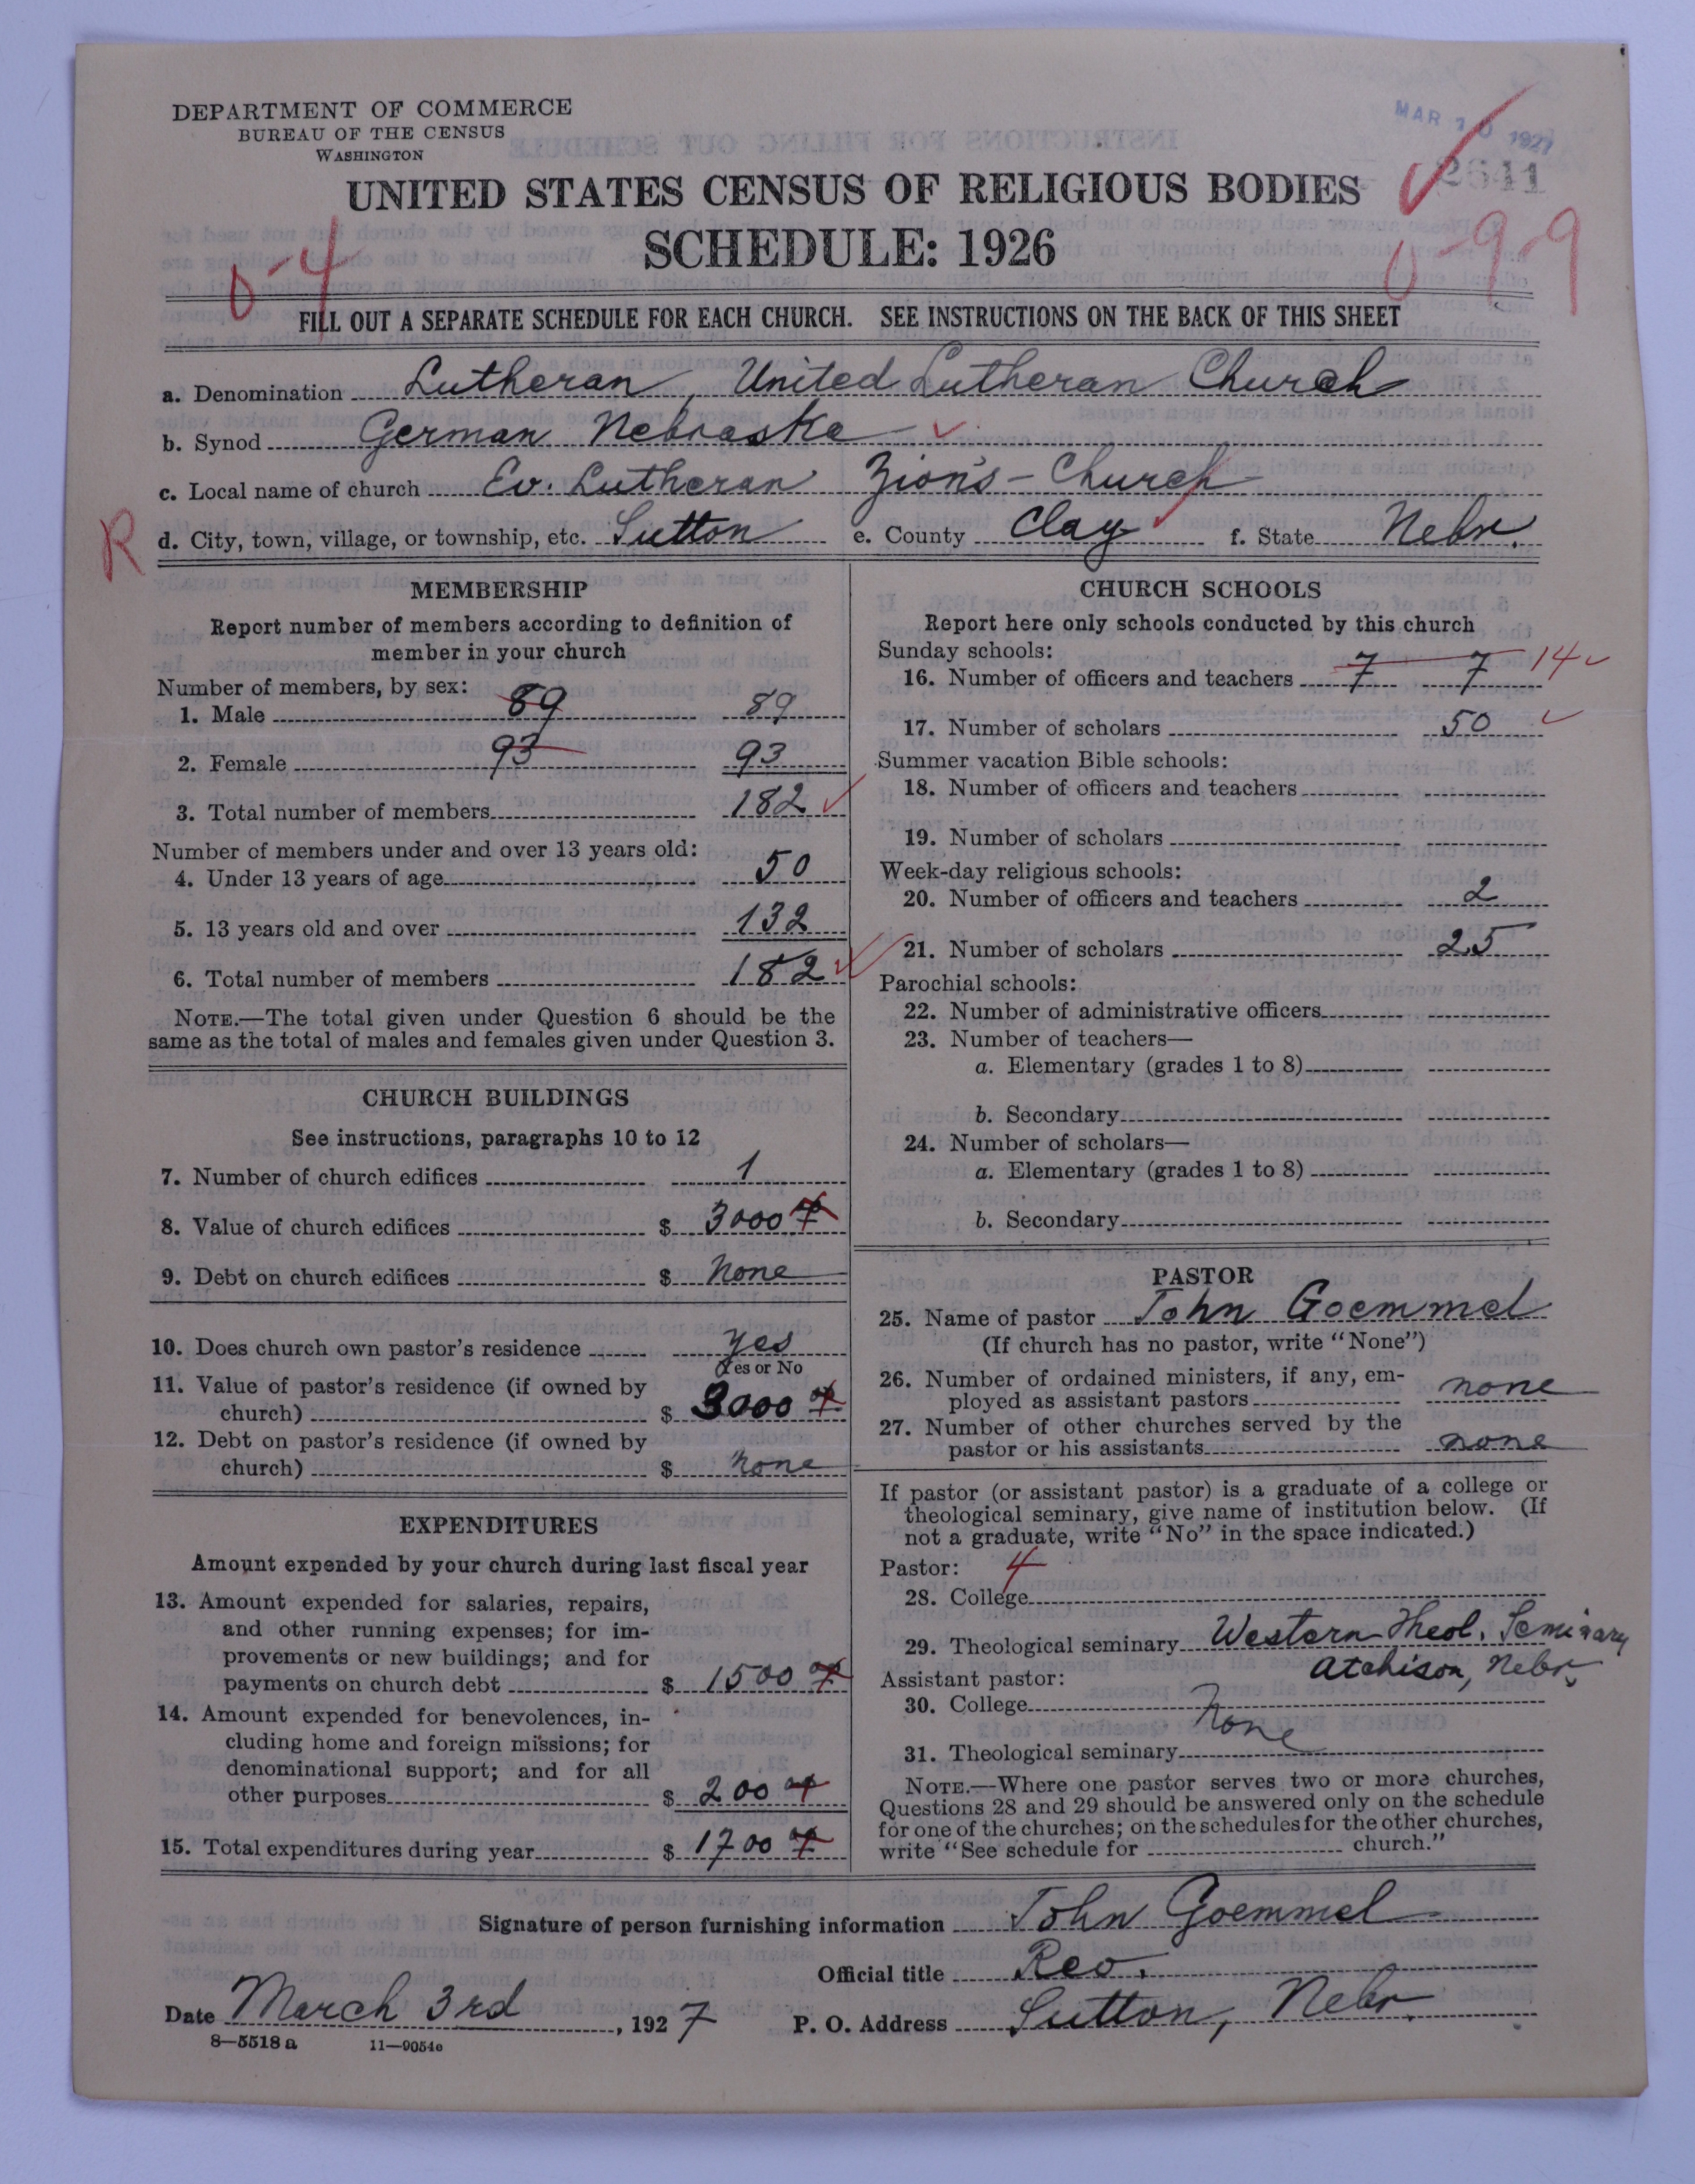 DEPARTMENT OF COMMERCE
BUREAU OF THE CENSUS
WASHINGTON
MAR 10 1927
2641
UNITED STATES CENSUS OF RELIGIOUS BODIES
SCHEDULE: 1926
0-4
0-9-9
FILL OUT A SEPARATE SCHEDULE FOR EACH CHURCH. SEE INSTRUCTIONS ON THE BACK OF THIS SHEET
a. Denomination Lutheran, United Lutheran Church
b. Synod German Nebraska
c. Local name of church Ev. Lutheran Zion's-Church
R
d. City, town, village, or township, etc. Sutton e. County Clay f. State Nebr.
MEMBERSHIP
Report number of members according to definition of
member in your church
Number of members, by sex:
1. Male 89 89
2. Female 93 93
3. Total number of members 182
Number of members under and over 13 years old:
4. Under 13 years of age 50
5. 13 years old and over 132
6. Total number of members 182
NOTE.—The total given under Question 6 should be the
same as the total of males and females given under Question 3.
CHURCH BUILDINGS
See instructions, paragraphs 10 to 12
7. Number of church edifices 1
8. Value of church edifices $ 3000
9. Debt on church edifices $ None
10. Does church own pastor's residence yes
Yes or No
11. Value of pastor's residence (if owned by
church) $ 3000
12. Debt on pastor's residence (if owned by
church) $ none
EXPENDITURES
Amount expended by your church during last fiscal year
13. Amount expended for salaries, repairs,
and other running expenses; for im-
provements or new buildings; and for
payments on church debt $ 1500
14. Amount expended for benevolences, in-
cluding home and foreign missions; for
denominational support; and for all
other purposes $ 200
15. Total expenditures during year $ 1700
CHURCH SCHOOLS
Report here only schools conducted by this church
Sunday schools:
16. Number of officers and teachers 7 7 14
17. Number of scholars 50
Summer vacation Bible schools:
18. Number of officers and teachers
19. Number of scholars
Week-day religious schools:
20. Number of officers and teachers 2
21. Number of scholars 25
Parochial schools:
22. Number of administrative officers
23. Number of teachers—
a. Elementary (grades 1 to 8)
b. Secondary
24. Number of scholars—
a. Elementary (grades 1 to 8)
b. Secondary
PASTOR
25. Name of pastor John Goemmel
(If church has no pastor, write "None")
26. Number of ordained ministers, if any, em-
ployed as assistant pastors none
27. Number of other churches served by the
pastor or his assistants none
If pastor (or assistant pastor) is a graduate of a college or
theological seminary, give name of institution below. (If
not a graduate, write "No" in the space indicated.)
Pastor: 4
28. College
29. Theological seminary Western Theol. Seminary
Atchison, Nebr.
Assistant pastor:
30. College None
31. Theological seminary
NOTE.—Where one pastor serves two or more churches,
Questions 28 and 29 should be answered only on the schedule
for one of the churches; on the schedules for the other churches,
write "See schedule for church."
Signature of person furnishing information John Goemmel
Official title Rev.
Date March 3rd, 1927 P. O. Address Sutton, Nebr.
8—5518 a 11—9054c